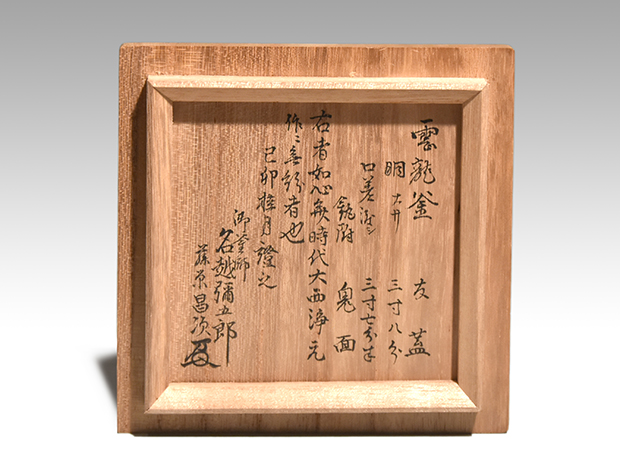 雲龍釜 友蓋
胴 大サ 三寸八分
口差渡シ 三寸七分半
鐶付 鬼面
右者如心斎時代大西浄元
作ニ無紛者也
己卯 月證之
御釜師
名越彌五郎
藤原昌次